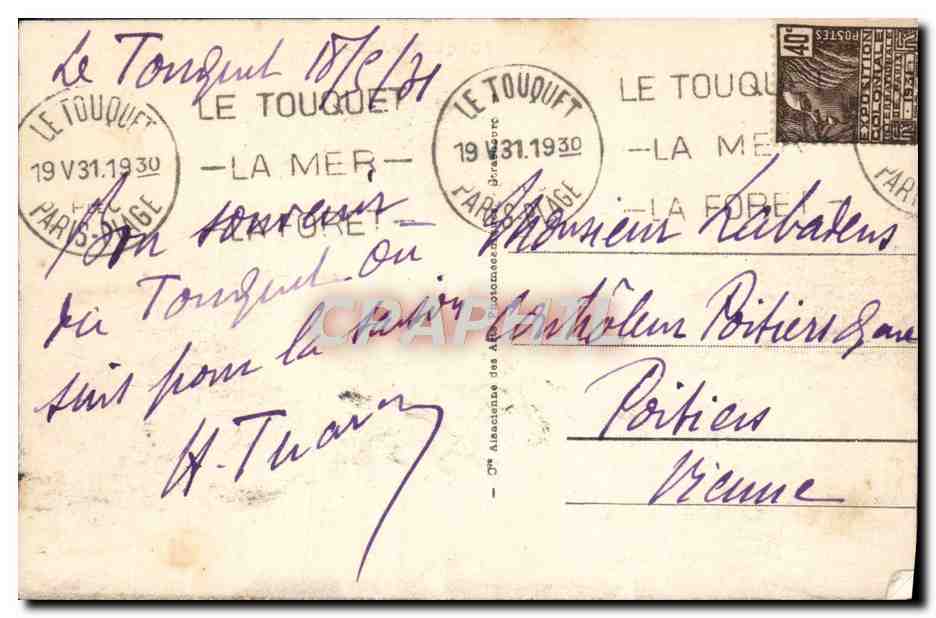 Le Touquet 18/5/31
LE TOUQUET
19 V31.1930
PARIS-PLAGE
LE TOUQUET
—LA MER—
LA FORET—
LE TOUQUET
19 V31.1930
PARIS-PLAGE
LE TOUQU
—LA MER
—LA FORET—
PARI
40c
POSTES
EXPOSITION
COLONIALE
INTERNATIONALE
PARIS 1931
Bon souvenir
du Touquet où
suis pour la saison
Monsieur Labadens
Contrôleur Poitiers Gare
Poitiers
Vienne
— Cie Alsacienne des Arts Photomécaniques, Strasbourg
CARPHIL